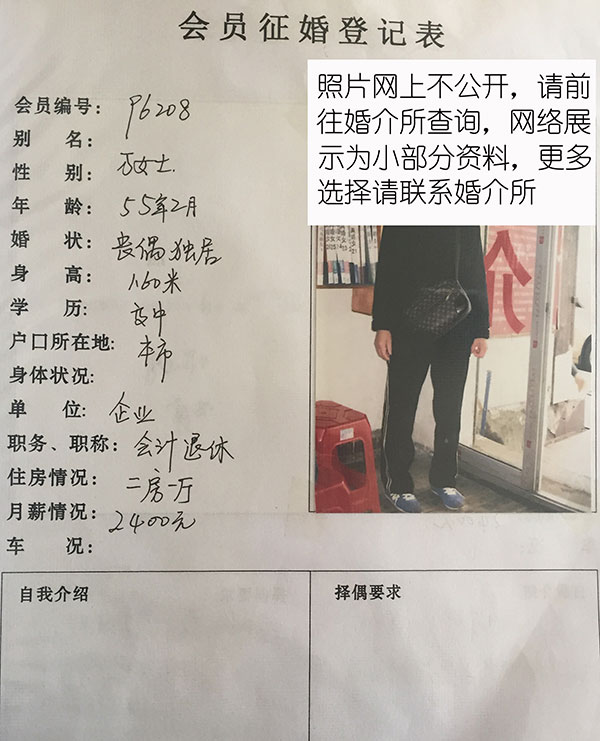 会员征婚登记表
照片网上不公开，请前
往婚介所查询，网络展
示为小部分资料，更多
选择请联系婚介所
会员编号： P6208
别 名：
性 别： 万女士.
年 龄： 55年2月
婚 状： 丧偶独居
身 高： 1.60米
学 历： 高中
户口所在地： 本市
身体状况：
单 位： 企业
职务、职称： 会计退休
住房情况： 二房一厅
月薪情况： 2400元
车 况：
自我介绍
择偶要求